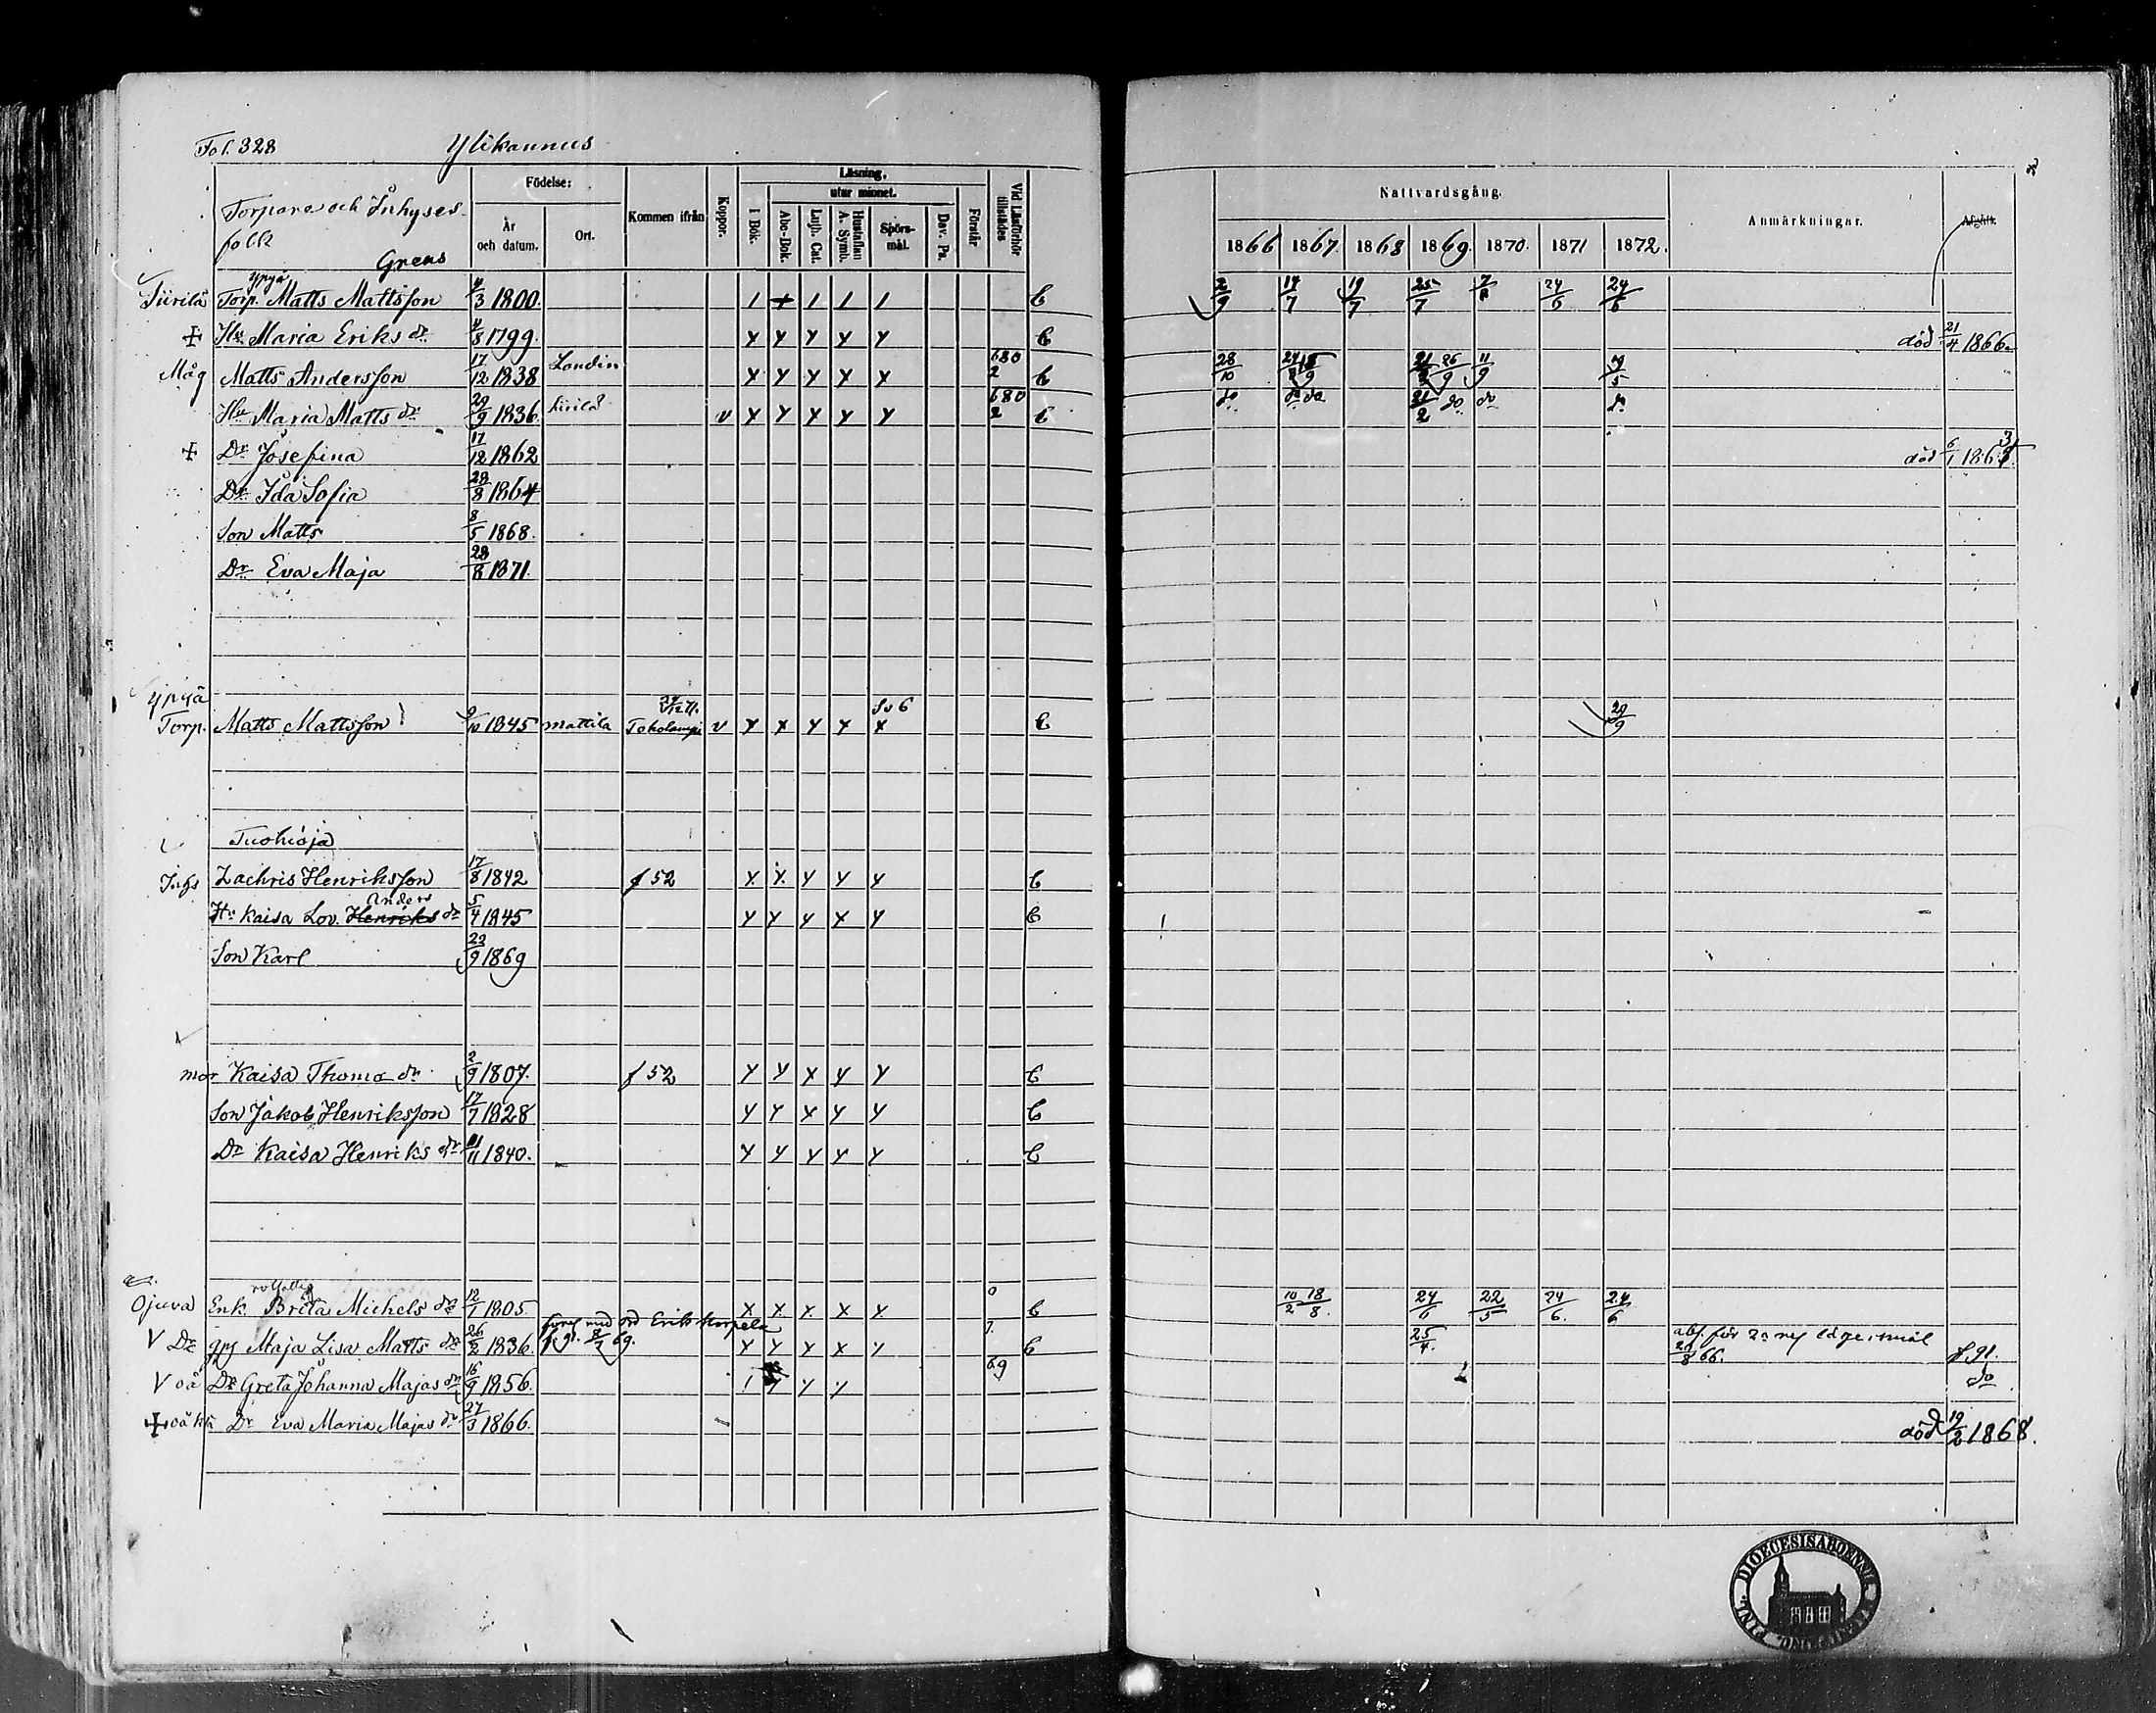 Fol. 328 Ylikannus
Torpare och Inhyses
folk
Grens
Födelse:
År och datum.
Ort.
Kommen ifrån
Koppor.
Läsning,
utur minnet.
I Bok.
Abc-Bok.
Luth. Cat.
Hustaflan A. Symb.
Spörsmål.
Dav. Ps.
Förstår
Vid Läsförhör tillstädes
Nattvardsgång.
1866 1867. 1868 1869. 1870. 1871 1872.
Anmärkningar.
Afgått.
Ypyä
Siirilä Torp. Matts Mattsson 4/3 1800. 1 + 1 1 1 C 2/9 14/7 19/7 25/7 24/6 24/6
+ Hu Maria Eriks dr 4/8 1799. Y Y Y Y Y C död 21/4 1866.
Måg Matts Andersson 17/12 1838 X Y Y Y X 680 2 C 28/10 11/9
Hu Maria Matts dr 29/9 1836. Siirilä v X Y X Y Y 680 2 C do do do 21/2 do do do
+ Dr Josefina 17/12 1862 död 6/1 186
Dr Ida Sofia 28/8 1864
Son Matts 8/5 1868.
Dr Eva Maja 28/8 1871.
Ypyä
Torp. Matts Mattsson 9/10 1845 Mattila Toholampi v Y X Y X X C 29/9
Tuohioja
Inhs Zachris Henriksson 17/8 1842 f 52 X X Y Y Y C
Anders
Hu Kaisa Lov. Henriks dr 5/4 1845 Y Y Y X Y C
Son Karl 23/9 1869
mor Kaisa Thomæ dr 2/9 1807. f 52 Y Y X Y Y C
Son Jakob Henriksson 17/7 1828 Y Y X Y Y C
Dr Kaisa Henriks dr 11/11 1840. Y Y Y Y Y C
Ojuva Enk. Brita Michels dr 12/1 1805. X X X X X C 10/2 18/8. 24/6 22/5 24/6. 24/6
Erik Korpela
V Dr Maja Lisa Matts dr 26/2 1836. Y Y Y X Y C 25/4. f 91.
V oä Dr Greta Johanna Majas dr 16/9 1856. 69 do
+ oä Dr Eva Maria Majas dr 27/3 1866. död 19/2 1868.
DIOECESIS ABOENSIS